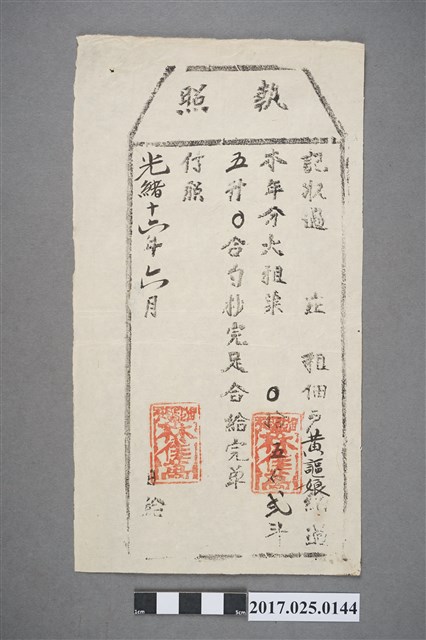 執照
記收過 莊 租佃戶黃謳娘納過
本年分大租粟 〇拾五石弍斗
五升〇合勺抄完足合給完單
付照
光緒十六年六月 日給
林佳萬
林佳萬
1cm 5cm
2017.025.0144